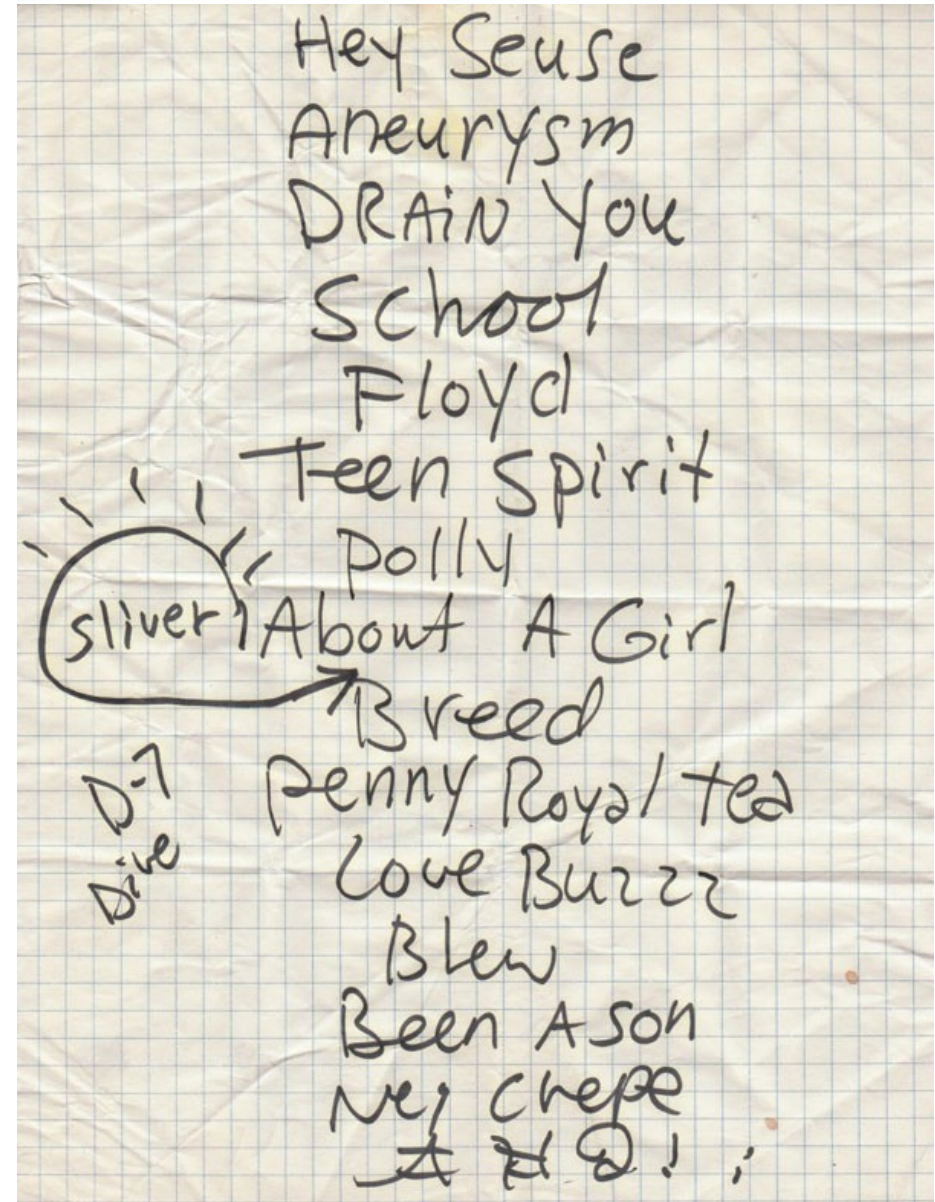 Hey Seuse
Aneurysm
DRAiN You
School
Floyd
Teen Spirit
polly
sliver
About A Girl
Breed
D-7
Dive
Penny Royal tea
Love Buzzz
Blew
Been A Son
Neg Crepe